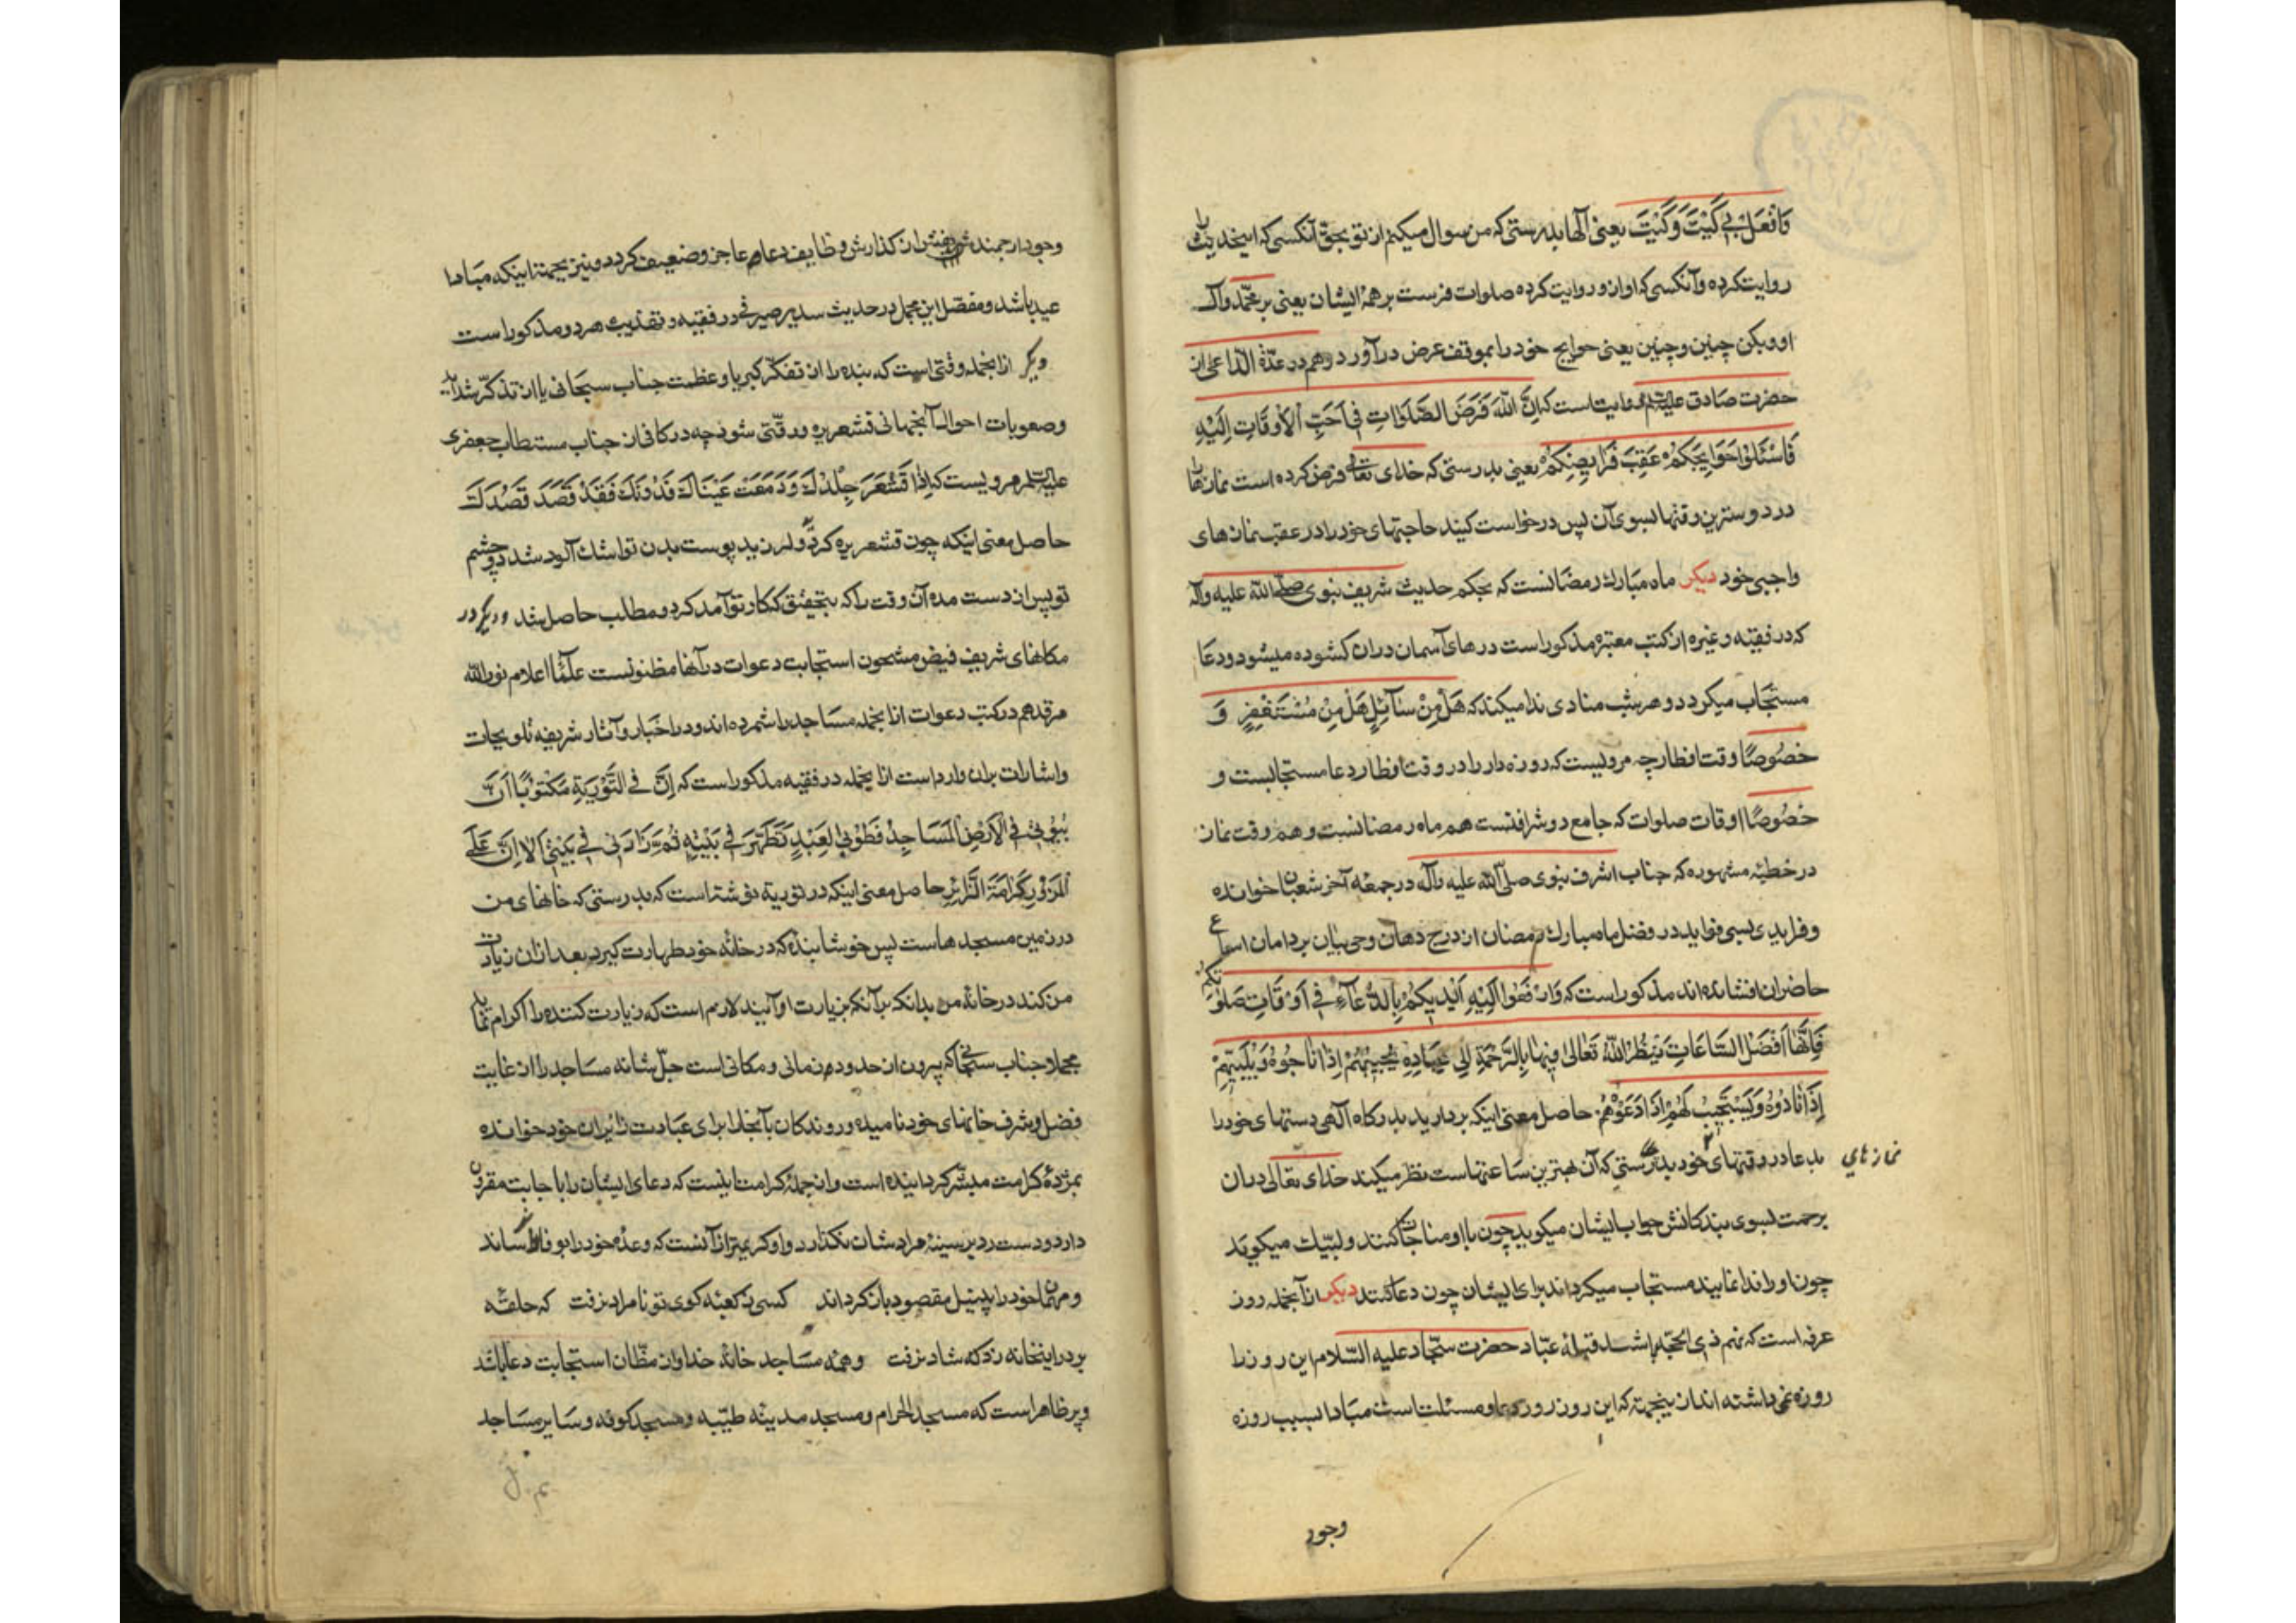 وَافْعَلْ بِی كَیْتَ وَكَیْتَ یعنی الٓها بدرستی که من سوال میکنم از تو بحق آنکسی که اینحدیث را
روایت کرده و آنکسی که او ازو روایت کرده صلوات فرست بر همهٔ ایشان یعنی بر محمّد و آل
او و بکن چنین و چنین یعنی حوایج خود را بموقف عرض درآورد و هم در عدّة الدّاعی از
حضرت صادق علیه السّلم روایت است که اِنَّ اللهَ فَرَضَ الصَّلَوٰاتِ فِی اَحَبِّ الْاَوقَاتِ اِلَیْهِ
فَاسْئَلوُا حَوَایِجَكُمْ عَقِبَ فَرَایِضِكُمْ یعنی بدرستی که خدای تعالی فرض کرده است نمازها را
در دوسترین وقتها بسوی آن پس درخواست کنید حاجتهای خود را در عقب نمازهای
واجبی خود دیکر ماه مبارك رمضانست که بحکم حدیث شریف نبوی صلی الله علیه وآله
که در فقیه و غیره از کتب معتبره مذکور است درهای آسمان دران کشوده میشود و دعا
مستجاب میکردد و هر شب منادی ندا میکند که هَلْ مِنْ سٰآئِلٍ هَلْ مِنْ مُسْتَغْفِرٍ وَ
خصُوصًا وقت افطار چه مرویست که روزه دار را در وقت افطار دعا مستجابست و
خصُوصًا اوقات صلوات که جامع دو شرافتست هم ماه رمضانست و هم وقت نماز
در خطبهٔ مشهوره که جناب اشرف نبوی صلّی الله علیه وآله در جمعهٔ آخر شعبان خوانده
و فراید بسی فواید در فضل ماه مبارك رمضان از درج دهان وحی بیان بر دامان اسماع
حاضران افشانده اند مذکور است که وَارْفَعوُا اِلَیْهِ اَیْدِیَكُمْ بِالدُّعَآءِ فِی اَوْقَاتِ صَلٰوتِكُمْ
فَاِنَّهَا اَفْضَلُ السَّاعَاتِ یَنْظُرُ اللهُ تَعَالیٰ فِیهَا بِالرَّحْمَةِ اِلیٰ عِبَادِهِ یُجِیبُهُمْ اِذَا نَاجُوهُ وَیُلَبِّیهِمْ
اِذَا نَادُوهُ وَیَسْتَجِیبُ لَهُمْ اِذَا دَعَوْهُ حاصل معنی اینکه بردارید بدرکاه الٓهی دستهای خود را
بدعا در وقتهای خود بدرستی که آن بهترین ساعتهاست نظر میکند خدای تعالی دران
نمازهای
برحمت بسوی بندکانش جواب ایشان میکوید چون با او مناجات کنند و لبّیك میکوید
چون او را ندا نمایند مستجاب میکرداند برای ایشان چون دعا کنند دیکر از آنجمله روز
عرفه است که نهم ذی الحجّه باشد قبلهٔ عبّاد حضرت سجّاد علیه السّلام این روز را
روزه نمی داشته اند ازینجهة که این روز روز دعا و مسئلت است مبادا بسبب روزه
وجود
وجود ارجمند شریفش از کذارش وظایف دعا عاجز و ضعیف کردد و نیز بجهة اینکه مبادا
عید باشد و مفصّل این مجمل در حدیث سدیر صیرفی در فقیه و تهذیب هر دو مذکور است
دیکر از انجمله وقتی است که بنده را از تفکّر کبریا و عظمت جناب سبحانی یا از تذکّر شداید
و صعوبات احوال آنجهانی قشعریره و رقّتی شود چه در کافی از جناب مستطاب جعفری
علیه السّلم مرویست که اِذَا قْشَعَرَ جِلْدُكَ وَدَمَعَتْ عَیْنَاكَ فَدُونَكَ فَقَدْ قَصَدَ قَصْدَكَ
حاصل معنی اینکه چون قشعریره کرد و لرزید پوست بدن تو اشك آلود شد دو چشم
تو پس از دست مده آن وقت را که بتحقیق که کار تو آمد کرد و مطلب حاصل شد و دیکر در
مکانهای شریف فیض مشحون استجابت دعوات در آنها مظنونست علمآء اعلام نور الله
مرقدهم در کتب دعوات از انجمله مساجد را شمرده اند و در اخبار و آثار شریفه تلویحات
و اشارات بران وارد است از انجمله در فقیه مذکور است که اِنَّ فِی التَّوْرٰیةِ مَكْتوُبًا اَنَّ
بُیوُتِی فِی الْاَرْضِ الْمَسَاجِدُ فَطُوبیٰ لِعَبْدٍ تَطَهَّرَ فِی بَیْتِهِ ثُمَّ زَارَنِی فِی بَیْتِی اَلا اِنَّ عَلَی
الْمَزوُرِ كَرَامَةَ الزَّائِرِ حاصل معنی اینکه در توریة نوشته است که بدرستی که خانهای من
در زمین مسجدهاست پس خوشا بندهٔ که در خانهٔ خود طهارت کیرد بعد ازان زیارت
من کند در خانهٔ من بدانکه بر آنکه بزیارت او آیند لازم است که زیارت کننده را اکرام نماید
مجملا جناب سبحانی که بیرون از حدود زمانی و مکانی است جلّ شانه مساجد را از غایت
فضل و شرف خانهای خود نامیده و روندکان بآنجا را برای عبادت زایران خود خوانده
بمژدهٔ کرامت مبشّر کردانیده است و از جملهٔ کرامت اینست که دعای ایشان را باجابت مقرون
دارد و دست رد بر سینهٔ مرادشان نکذارد و او کریمتر از آنست که وعدهٔ خود را بوفا نرساند
و مهمان خود را بی نیل مقصود بازکرداند کسی ز کعبهٔ کوی تو نامراد نرفت که حلقهٔ
بر در اینخانه زد که شاد نرفت و همهٔ مساجد خانهٔ خدا و از مظّان استجابت دعا باشد
و پر ظاهر است که مسجد الحرام و مسجد مدینهٔ طیّبه و مسجد کوفه و سایر مساجد